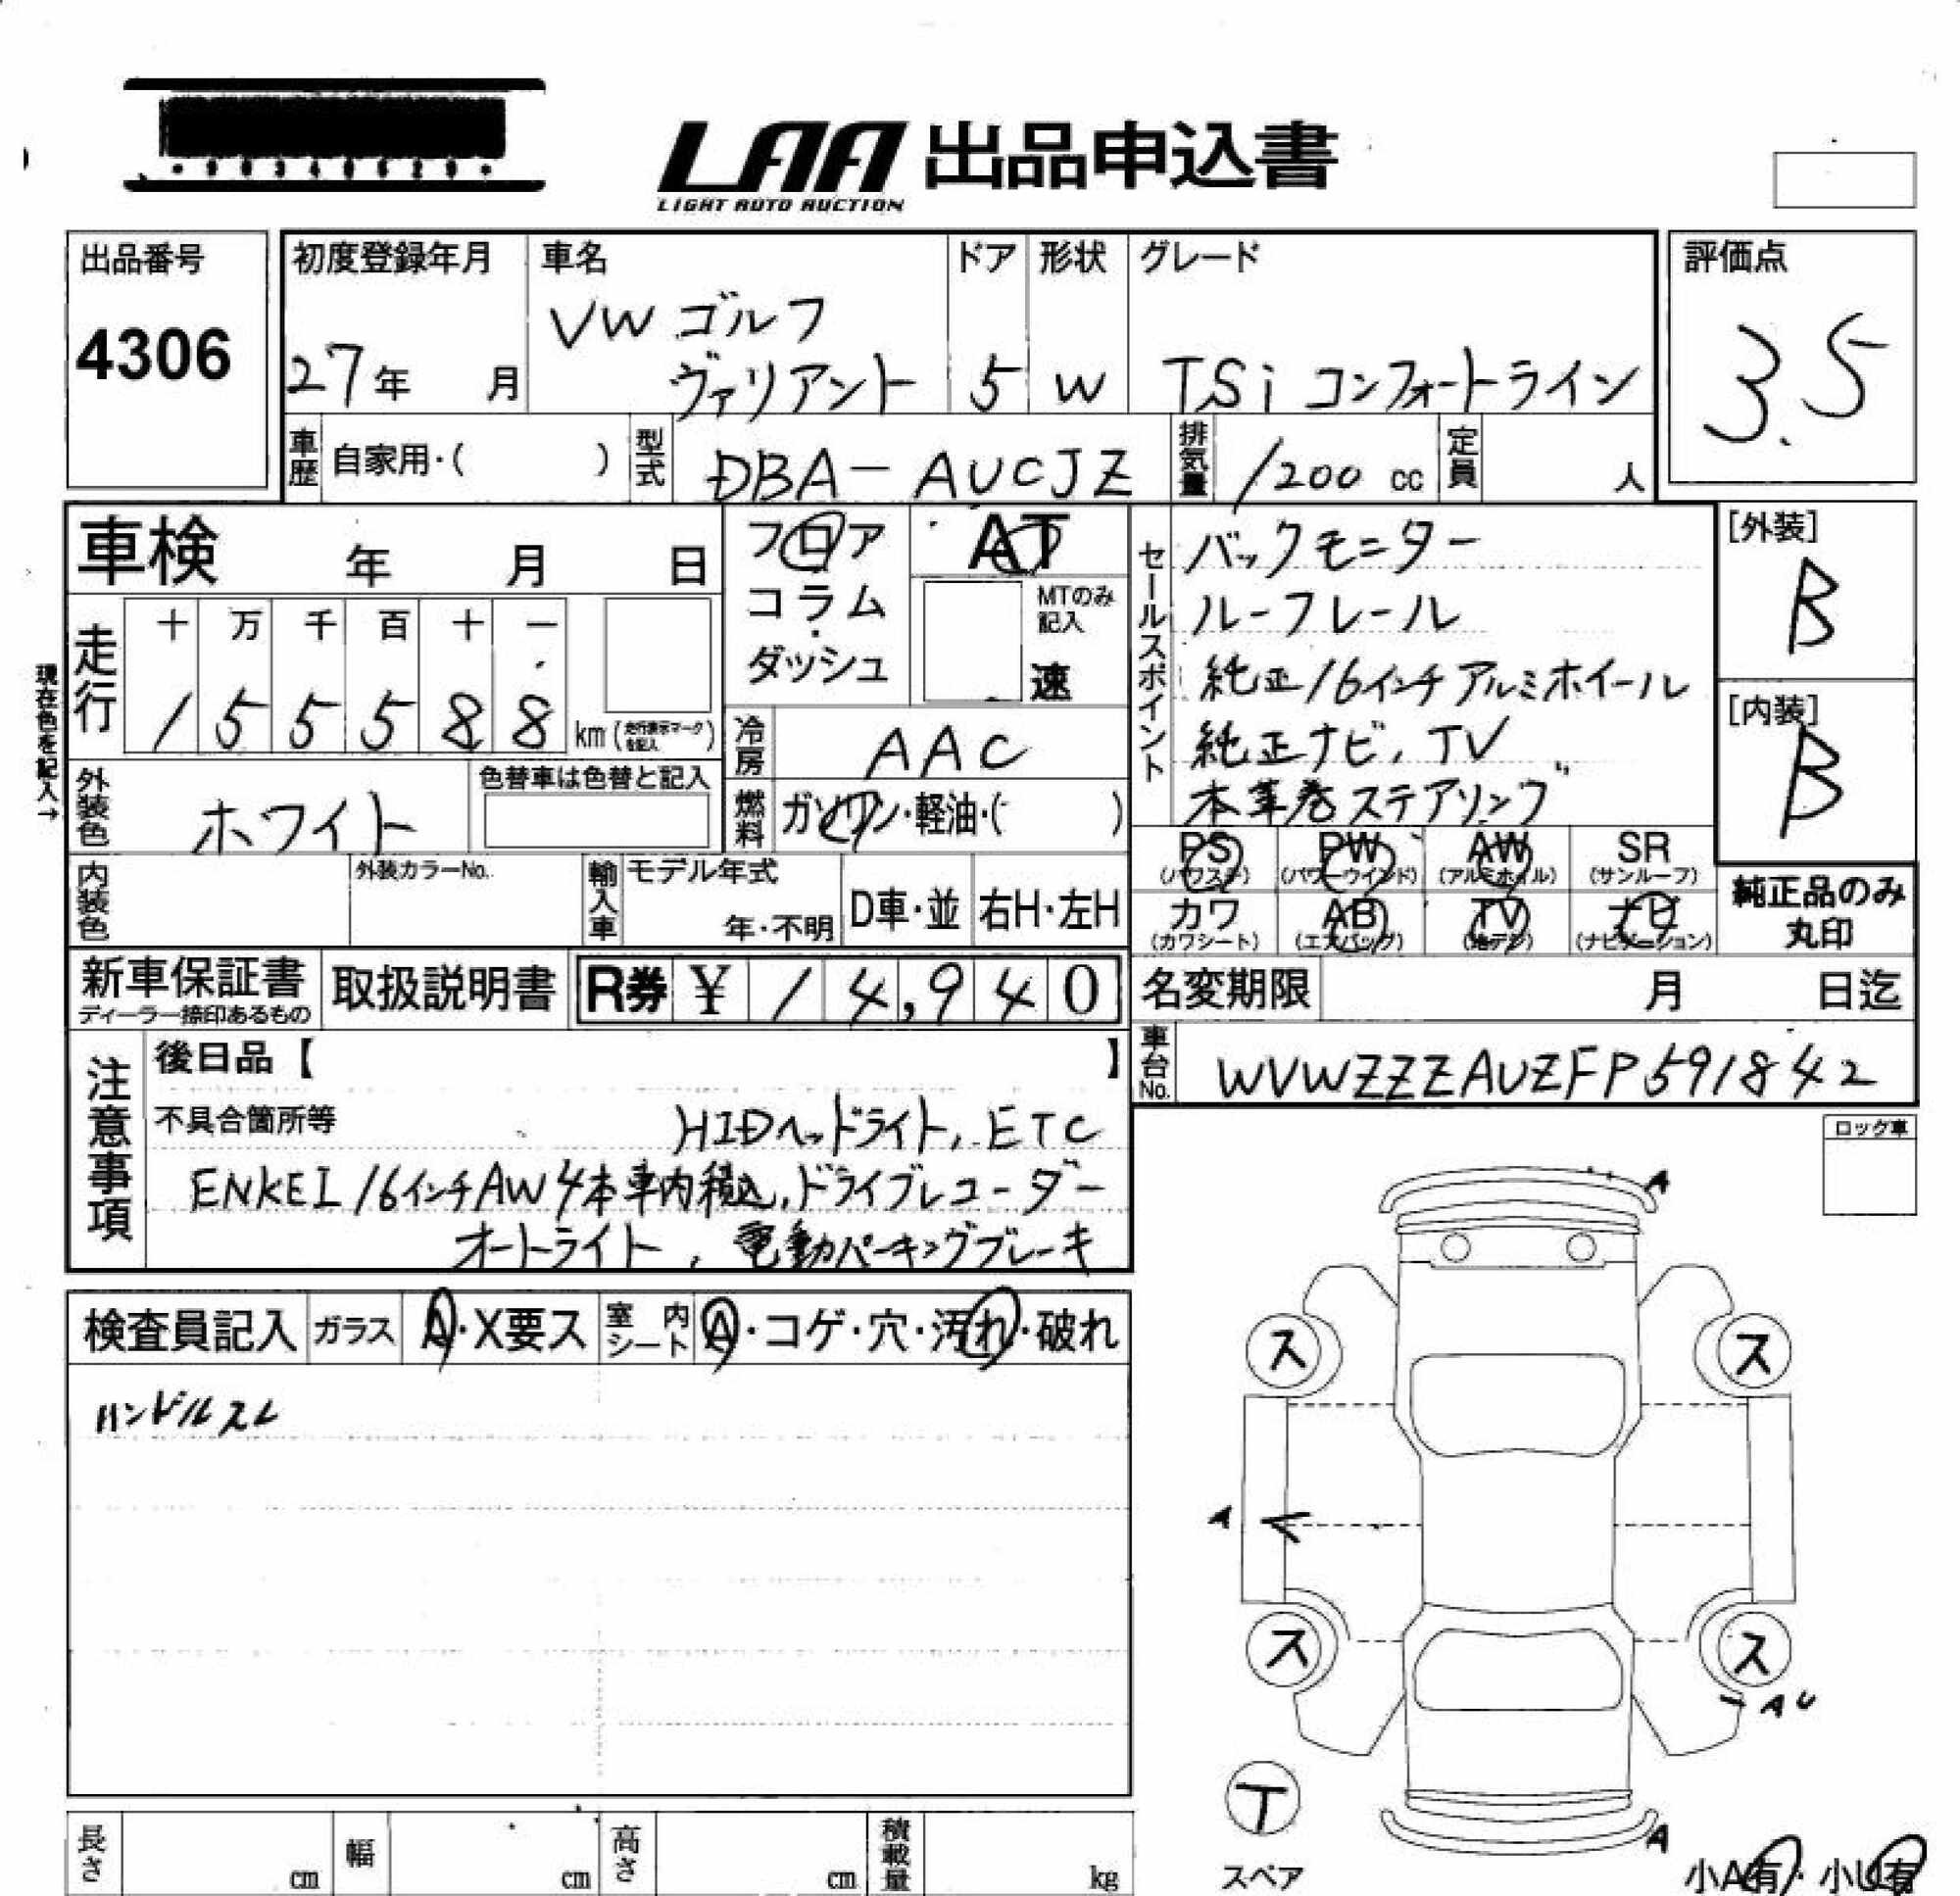 LAA 出品申込書
LIGHT AUTO AUCTION
出品番号
4306
初度登録年月 車名 ドア 形状 グレード
27年 月 VW ゴルフ ヴァリアント 5 W TSi コンフォートライン
評価点
3.5
車歴 自家用・( ) 型式 DBA-AUCJZ 排気量 1200 cc 定員 人
車検 年 月 日
フロア
コラム
・
ダッシュ
AT
MTのみ記入
速
走行 十 万 千 百 十 一
1 5 5 5 8 8 km (走行表示マークを記入)
現在色を記入→
外装色 ホワイト 色替車は色替と記入
冷房 AAC
燃料 ガソリン・軽油・( )
セールスポイント
バックモニター
ルーフレール
純正16インチアルミホイール
純正ナビ, TV
本革巻ステアリング
[外装]
B
[内装]
B
PS PW AW SR
(パワステ) (パワーウインド) (アルミホイル) (サンルーフ)
カワ AB TV ナビ
(カワシート) (エアバッグ) (地デジ) (ナビゲーション)
純正品のみ
丸印
内装色 外装カラーNo. 輸入車 モデル年式 年・不明 D車・並 右H・左H
新車保証書 取扱説明書 R券 ¥ 14,940
ディーラー捺印あるもの
名変期限 月 日迄
車台No. WVWZZZAUZFP591842
注意事項
後日品【 】
不具合箇所等 HIDヘッドライト, ETC
ENKEI 16インチAW4本車内積込, ドライブレコーダー
オートライト, 電動パーキングブレーキ
ロック車
検査員記入 ガラス A・X要ス 室内シート A・コゲ・穴・汚れ・破れ
ハンドルスレ
A
ス ス
A
ス ス
AU
T
スペア
A
小A有・小U有
長さ cm 幅 cm 高さ cm 積載量 kg